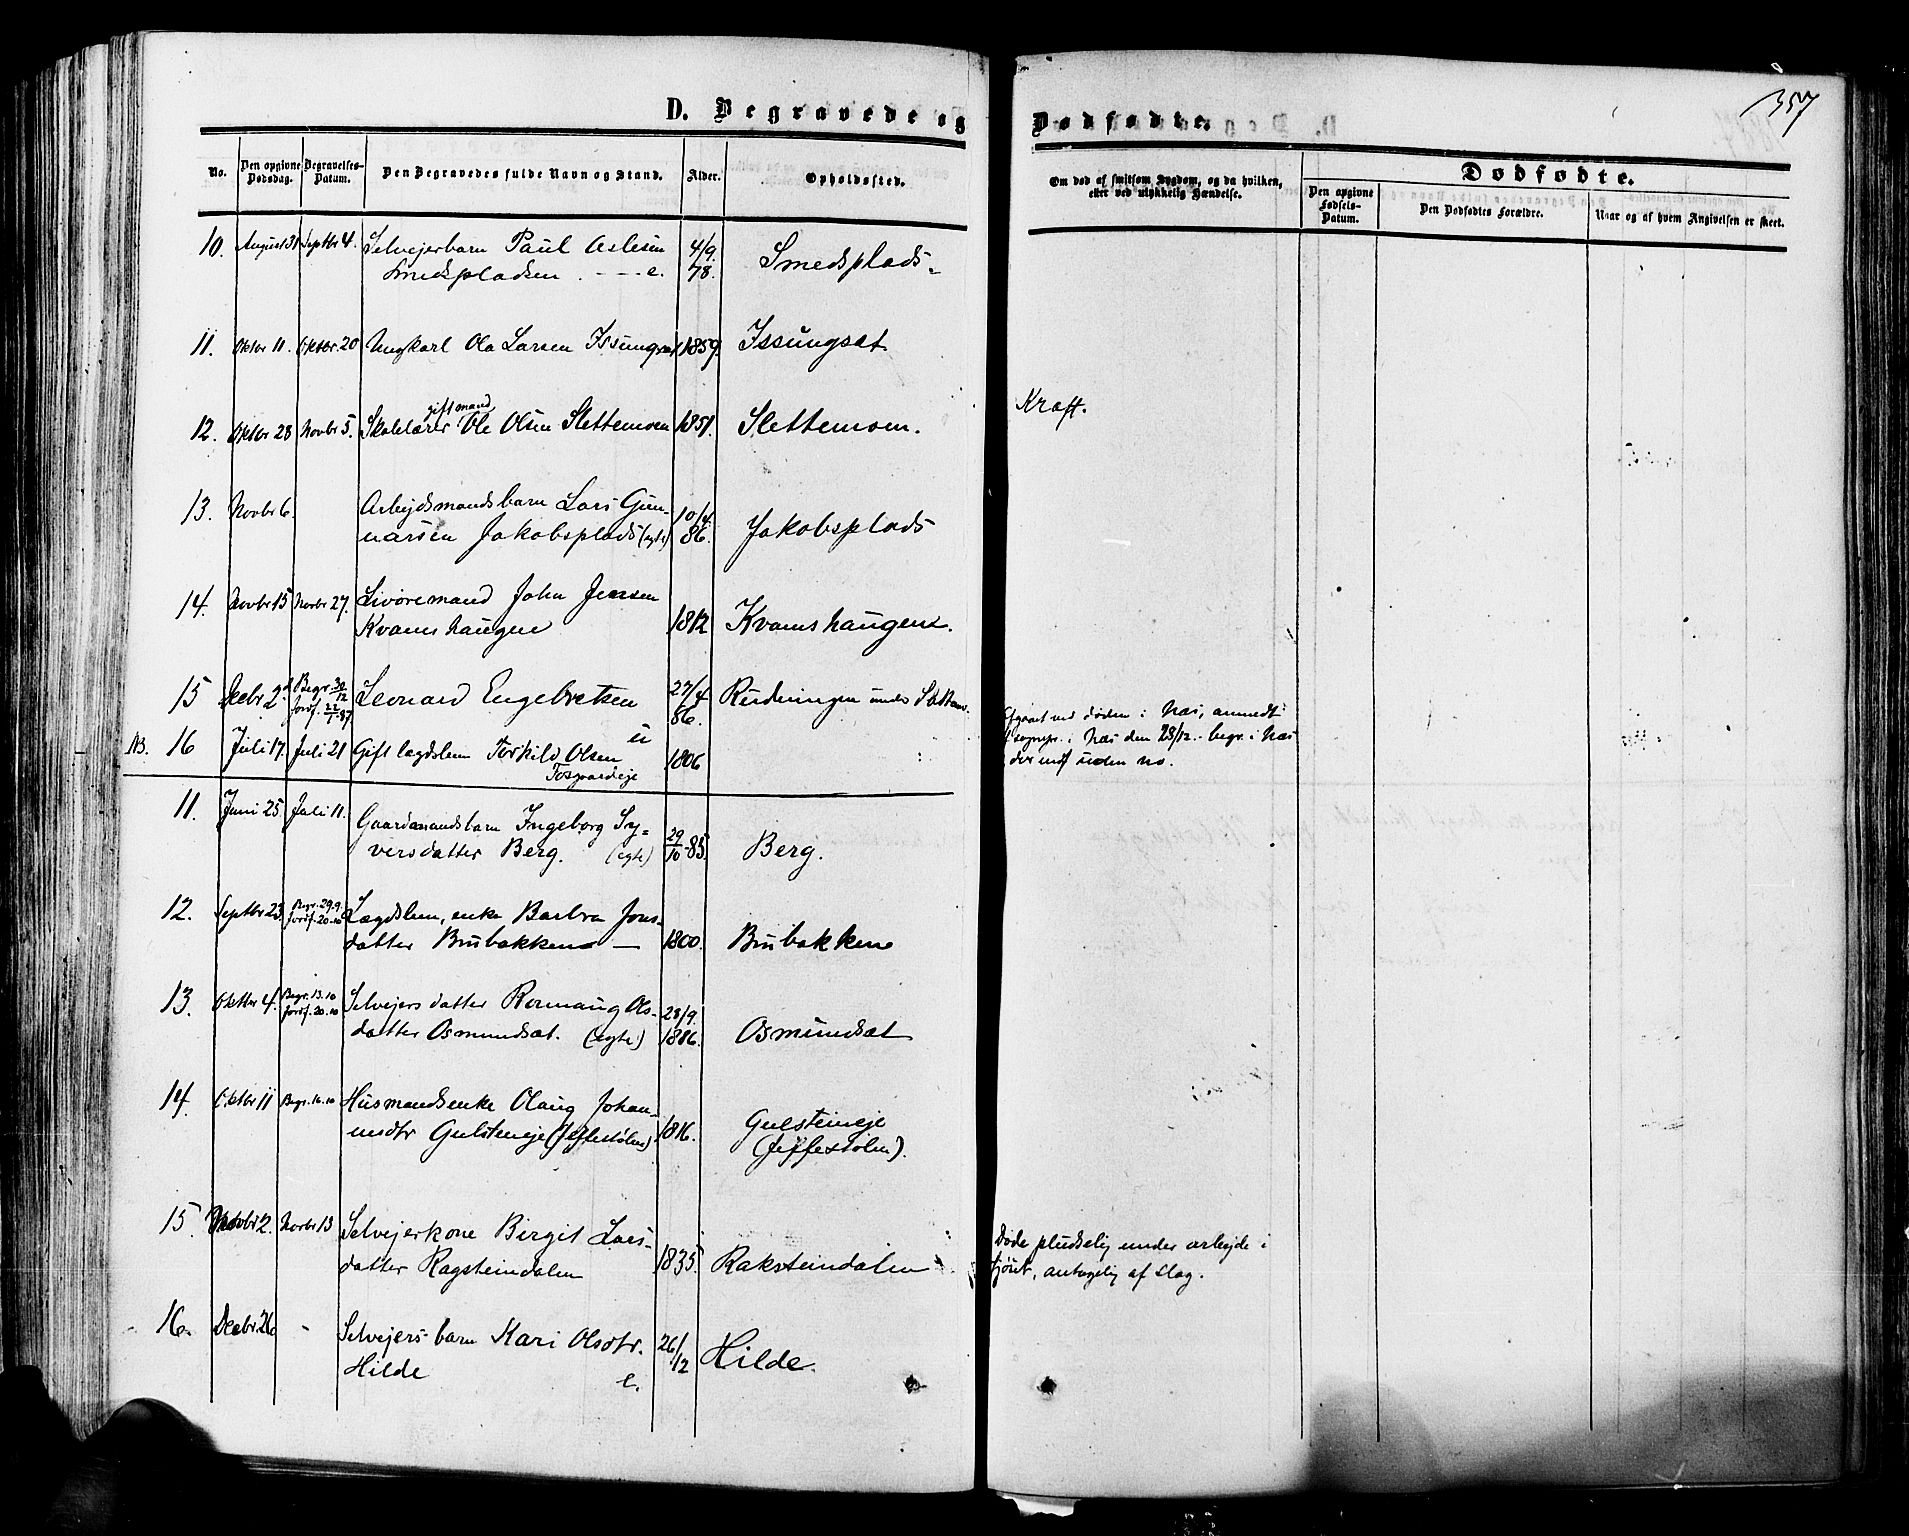 357
D. Begravede og Dødfødte.
No. Den opgivne Dødsdag. Begravelses-Datum. Den Begravedes fulde Navn og Stand. Alder. Opholdssted. Om død af smitsom Sygdom, og da hvilken, eller ved ulykkelig Hændelse. Dødfødte.
Den opgivne Fødsels-Datum. Den Dødfødtes Forældre. Naar og af hvem Angivelsen er skeet.
10. August 31 Septbr 4. Selvejerbarn Paul Aslesen 4/9. Smedsplads
Smedspladsen . - - - e. 78.
11. Oktbr 11. Oktbr. 20 Ungkarl Ola Larsen Issungset 1859. Issungset
gift mand
12. Oktbr 28 Novbr 5. Skolelærer Ole Olsen Slettemoen 1851. Slettemoen. Kræft.
13. Novbr 6. Arbejdsmandsbarn Lars Gun- 10/4.
narsen Jakobsplads (egte) 86. Jakobsplads
14. Novbr 15 Novbr 27. Livøremand John Jensen
Kvamshaugen 1812 Kvamshaugen.
15 Decbr 2. Begr. 30/12 Leonard Engebretsen 27/4 Rudningen under
Jordf. 22/1 87 u 86.
NB. 16 Juli 17. Juli 21 Gift lægdslem Torkild Olsen 1806
døden i Næs, anmeldt
i Næs den 28/12.- begr. i Næs
uden no.
11. Juni 25 Juli 11. Gaardmandsbarn Ingeborg Sy- 29/10-85.
versdatter Berg. (egte) Berg.
12. Septbr 23 Begr. 29.9. Lægdslem, enke Barbra Jons-
Jordf. 20.10 datter Brubakken — 1800. Brubakken
13. Oktbr 4. Begr. 13.10 Selvejers datter Rormaug Ols- 28/9.
Jordf. 20.10 datter Osmundsæt. (egte) 1886. Osmundsæt
14. Oktbr 11 Begr. 16.10 Husmandsenke Olaug Johan-
nesdtr Gulsteineje (Jeffestølen). 1816. Gulsteineje
(Jeffestølen).
15. Novbr 2. Novbr 13 Selvejerkone Birgit Lars- Døde pludselig under arbejde i
datter Ragsteindalen 1835. Raksteindalen fjøset, antagelig af slag.
16. Decbr. 26 - Selvejers-barn Kari Olsdtr. 26/12 Hilde.
Hilde e.